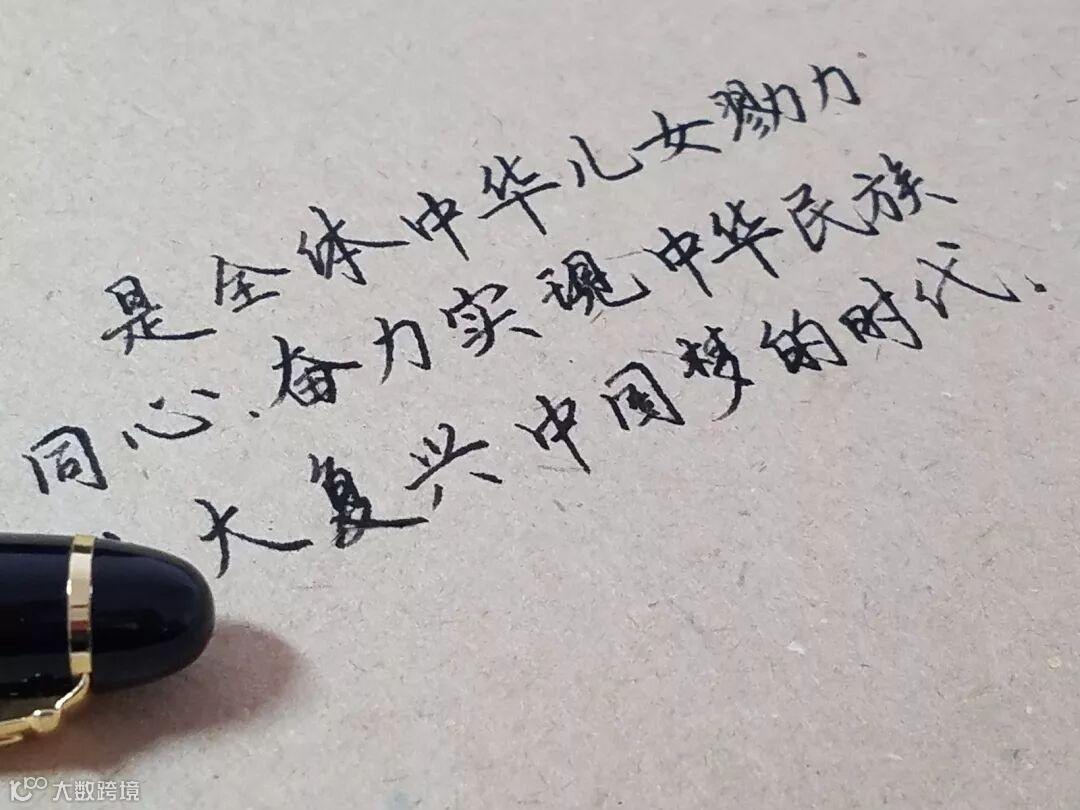 是全体中华儿女勠力
同心、奋力实现中华民族
大复兴中国梦的时代.
大数跨境